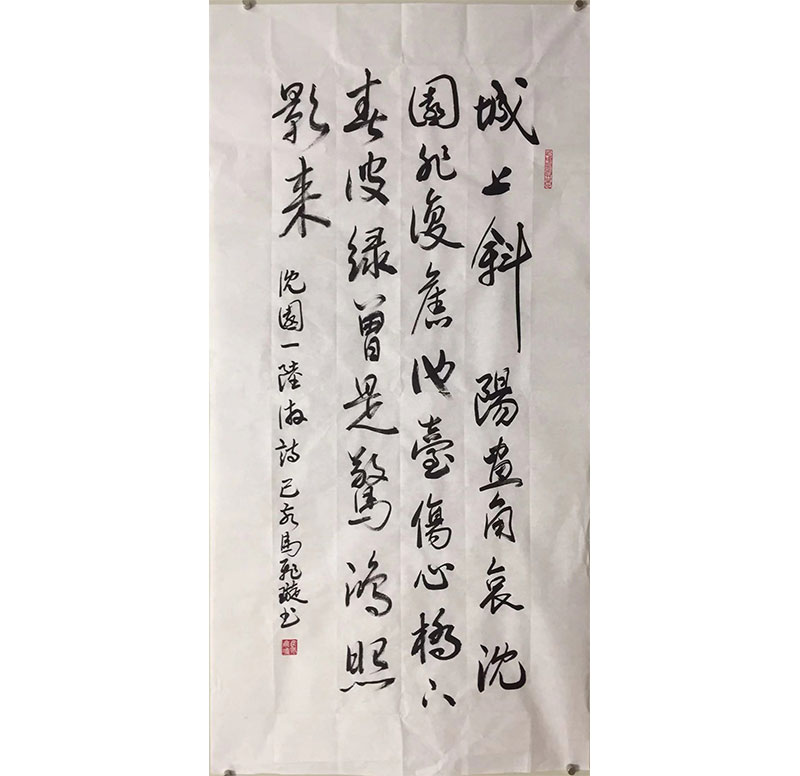 城上斜陽畫角哀沈
園非復舊池臺傷心橋下
春波緑曾是驚鴻照
影来
沈園一陸游詩己亥馬璇书